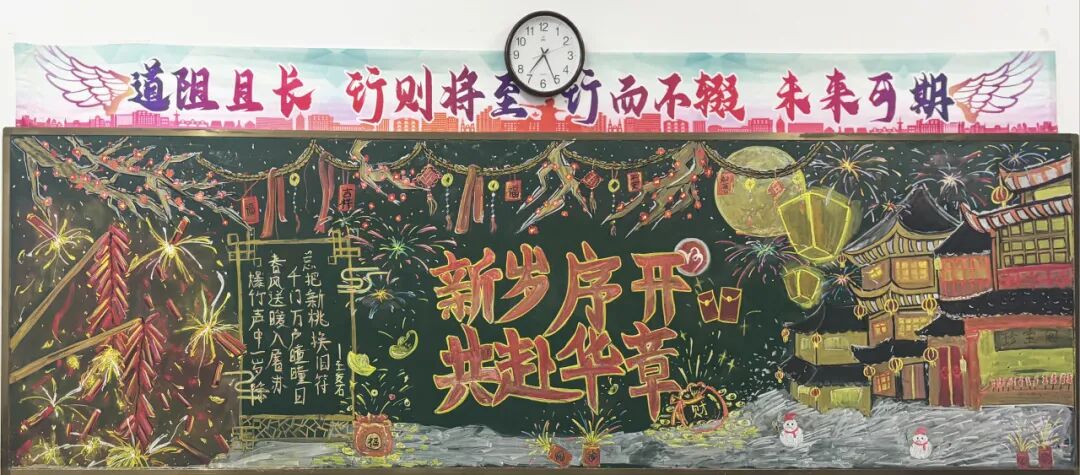 道阻且长 行则将至 行而不辍 未来可期
福
吉祥
福
爆竹声中一岁除
春风送暖入屠苏
千门万户曈曈日
总把新桃换旧符
—王安石
新岁序开
共赴华章
财